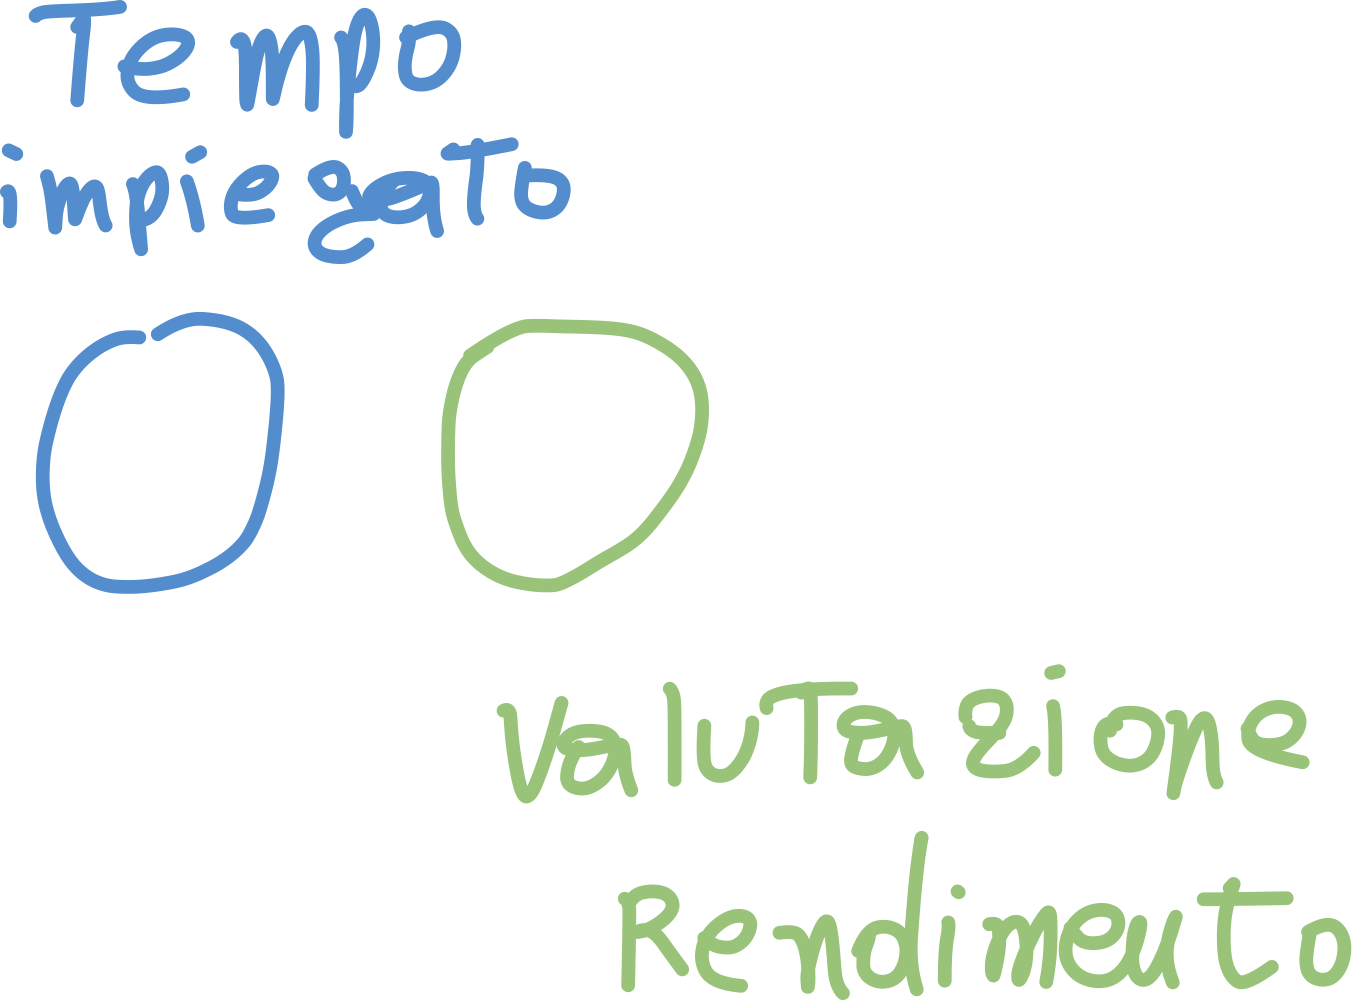 Tempo
impiegato
Valutazione
Rendimento